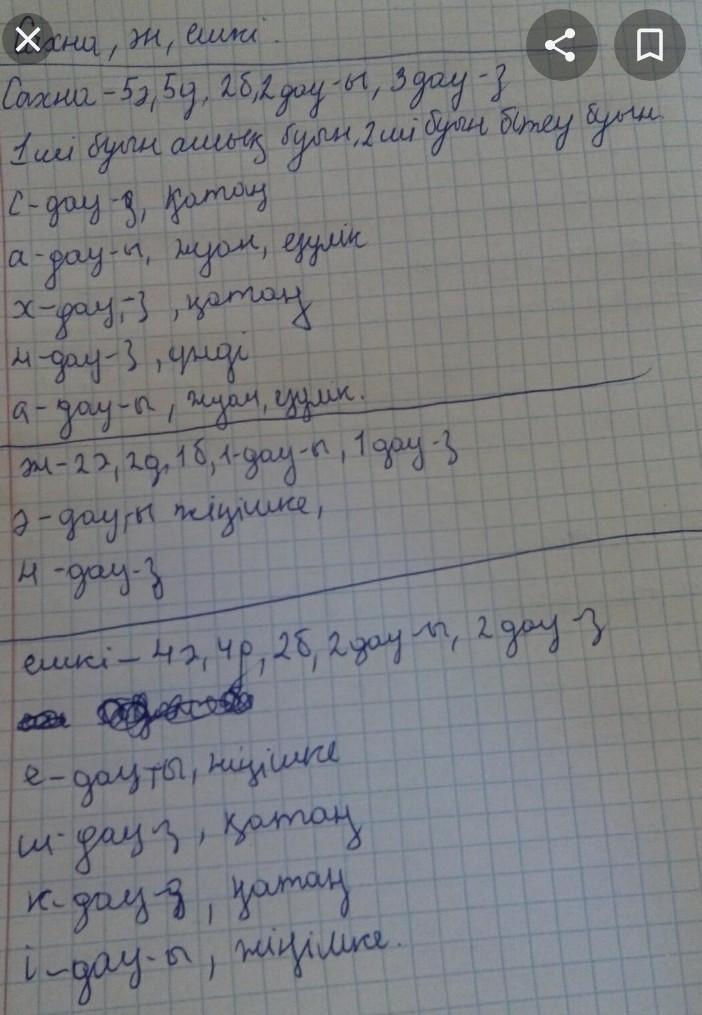 Сахна, ән, ешкі.
Сахна - 5ә, 5д, 2б, 2 дау-ы, 3 дау-з
1ші буын ашық буын, 2ші буын бітеу буын.
С-дау-з, қатаң
а-дау-ы, жуан, езулік
х-дау-з, қатаң
н-дау-з, үнді
а-дау-ы, жуан, езулік.
ән-2ә, 2д, 1б, 1-дау-ы, 1 дау-з
ә-дау-ы жіңішке,
н-дау-з
ешкі - 4ә, 4д, 2б, 2 дау-ы, 2 дау-з
е-дау-ы, жіңішке
ш-дау-з, қатаң
к-дау-з, қатаң
і-дау-ы, жіңішке.